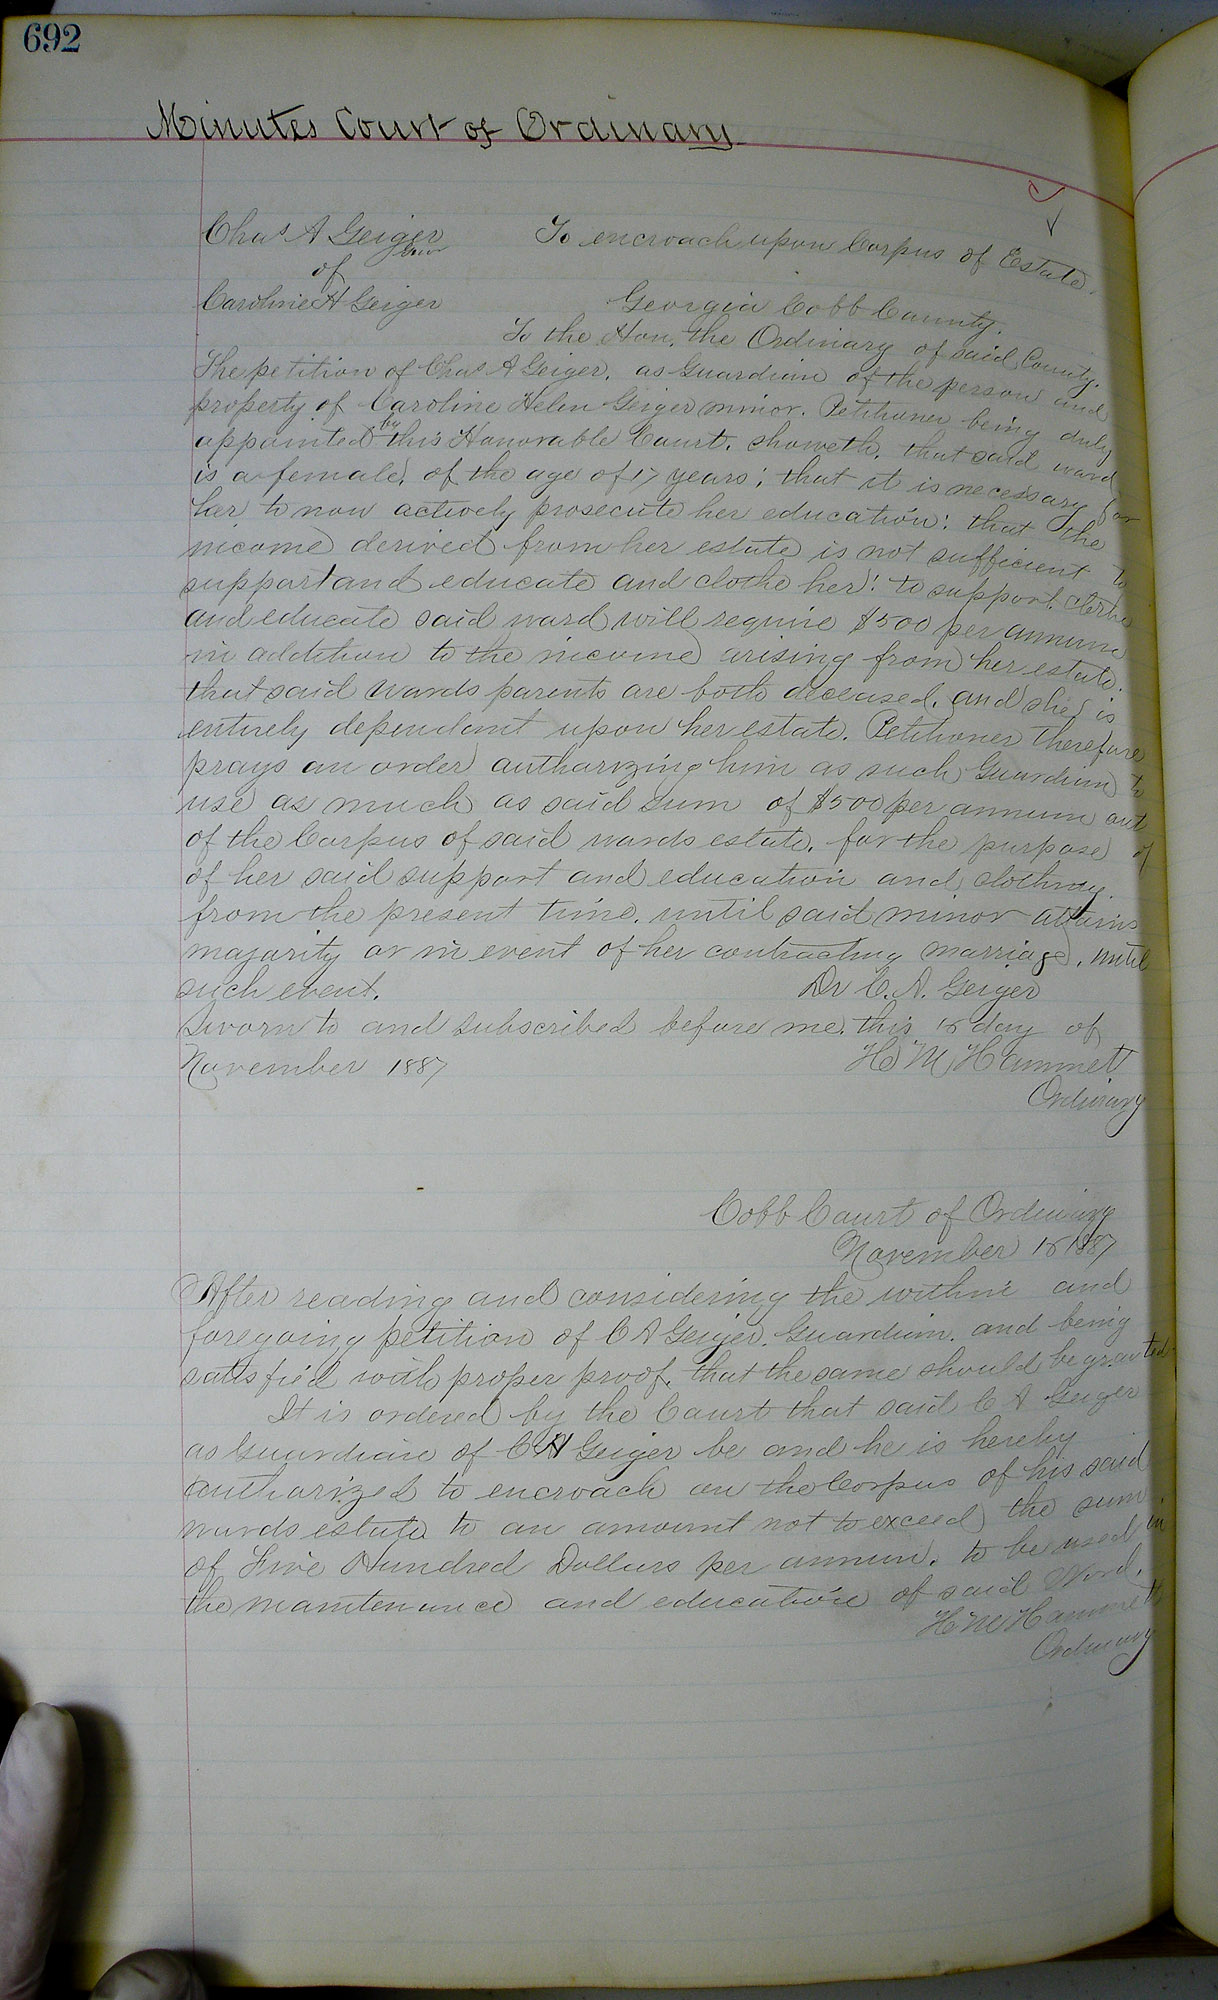 692
Minutes Court of Ordinary
Chas A Geiger To encroach upon Corpus of Estate.
Gur
of
Caroline H Geiger Georgia Cobb County.
To the Hon. the Ordinary of said County.
The petition of Chas A Geiger, as Guardian of the person and
property of Caroline Helen Geiger minor. Petitioner being duly
appointed by this Honorable Court. showeth. that said ward
is a female, of the age of 17 years; that it is necessary for
her to now actively prosecute her education; that the
income derived from her estate is not sufficient to
support and educate and clothe her; to support, clothe
and educate said ward will require $500 per annum
in addition to the income arising from her estate;
that said wards parents are both deceased, and she is
entirely dependent upon her estate. Petitioner therefore
prays an order authorizing him as such Guardian to
use as much as said sum of $500 per annum out
of the Corpus of said wards estate, for the purpose of
of her said support and education and clothing.
from the present time, until said minor attains
majority or in event of her contracting marriage, until
such event. Dr C. A. Geiger
Sworn to and subscribed before me. this day of
November 1887 H M Hammett
Ordinary
Cobb Court of Ordinary
November 1887
After reading and considering the within and
foregoing petition of C A Geiger, Guardian. and being
satisfied with proper proof, that the same should be granted
It is ordered by the Court that said C A Geiger
as Guardian of C H Geiger be and he is hereby
authorized to encroach on the Corpus of his said
wards estate to an amount not to exceed the sum
of Five Hundred Dollars per annum. to be used in
the maintenance and education of said Ward.
H M Hammett
Ordinary